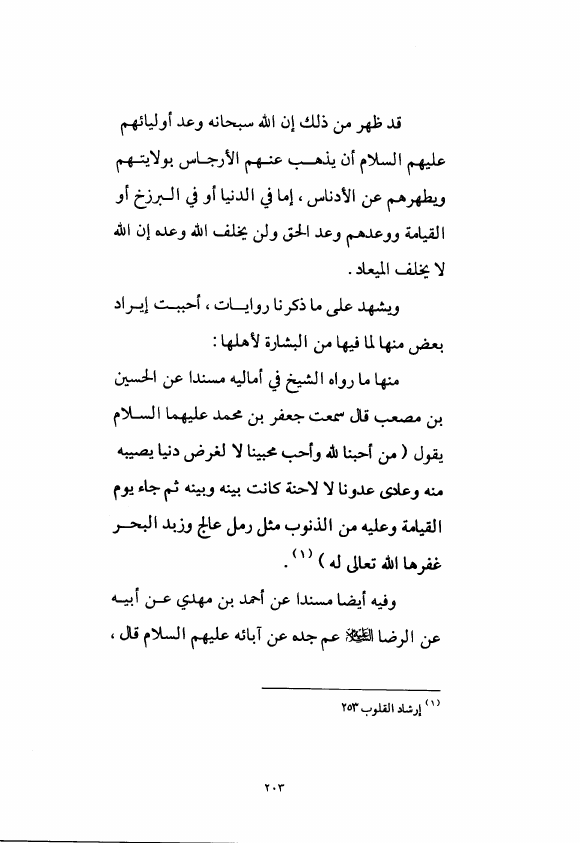 قد ظهر من ذلك إن الله سبحانه وعد أوليائهم
عليهم السلام أن يذهب عنهم الأرجاس بولايتهم
ويطهرهم عن الأدناس ، إما في الدنيا أو في البرزخ أو
القيامة ووعدهم وعد الحق ولن يخلف الله وعده إن الله
لا يخلف الميعاد .
ويشهد على ما ذكرنا روايات ، أحببت إيراد
بعض منها لما فيها من البشارة لأهلها :
منها ما رواه الشيخ في أماليه مسندا عن الحسين
بن مصعب قال سمعت جعفر بن محمد عليهما السلام
يقول ( من أحبنا لله وأحب محبينا لا لغرض دنيا يصيبه
منه وعادى عدونا لا لاحنة كانت بينه وبينه ثم جاء يوم
القيامة وعليه من الذنوب مثل رمل عالج وزبد البحر
غفرها الله تعالى له ) (١) .
وفيه أيضا مسندا عن أحمد بن مهدي عن أبيه
عن الرضا عم جده عن آبائه عليهم السلام قال ،
(١) إرشاد القلوب ٢٥٣
٢٠٣